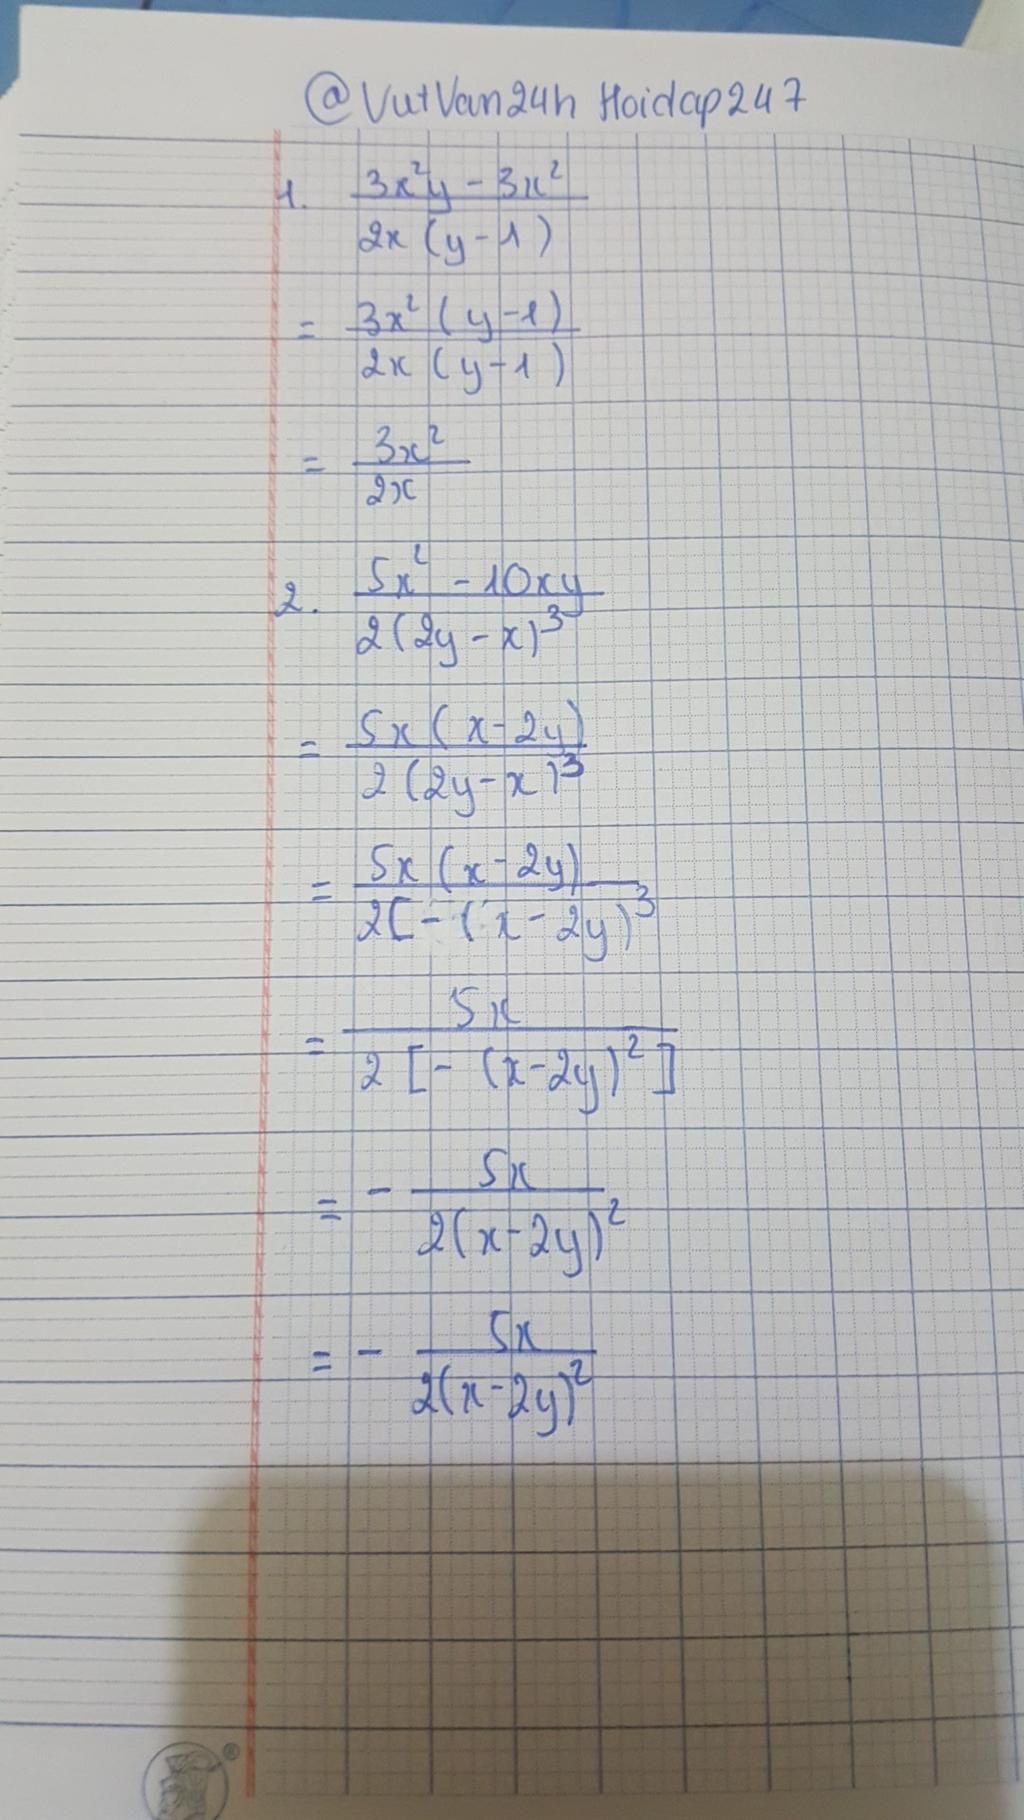 @VutVan24h Hoidap247
1. 3x²y - 3x² / 2x (y - 1)
= 3x² (y - 1) / 2x (y - 1)
= 3x² / 2x
2. 5x² - 10xy / 2(2y - x)³
= 5x (x - 2y) / 2 (2y - x)³
= 5x (x - 2y) / 2[- (x - 2y)³
= 5x / 2 [- (x - 2y)²]
= - 5x / 2(x - 2y)²
= - 5x / 2(x - 2y)²
®